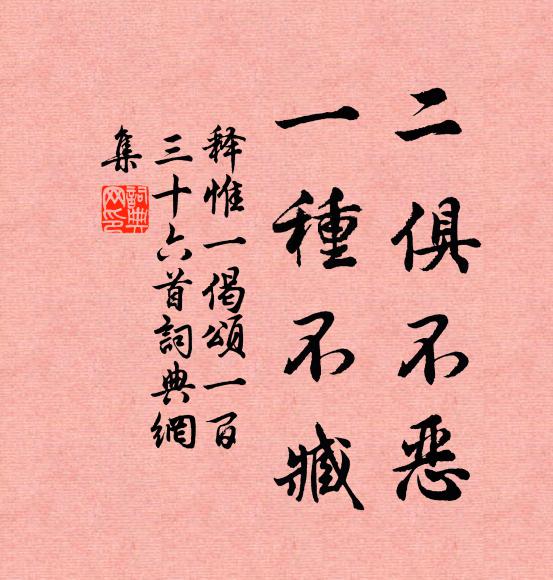 二俱不恶
一種不臧
释惟一偈頌一百
三十六首詞典網
集
詞典網印